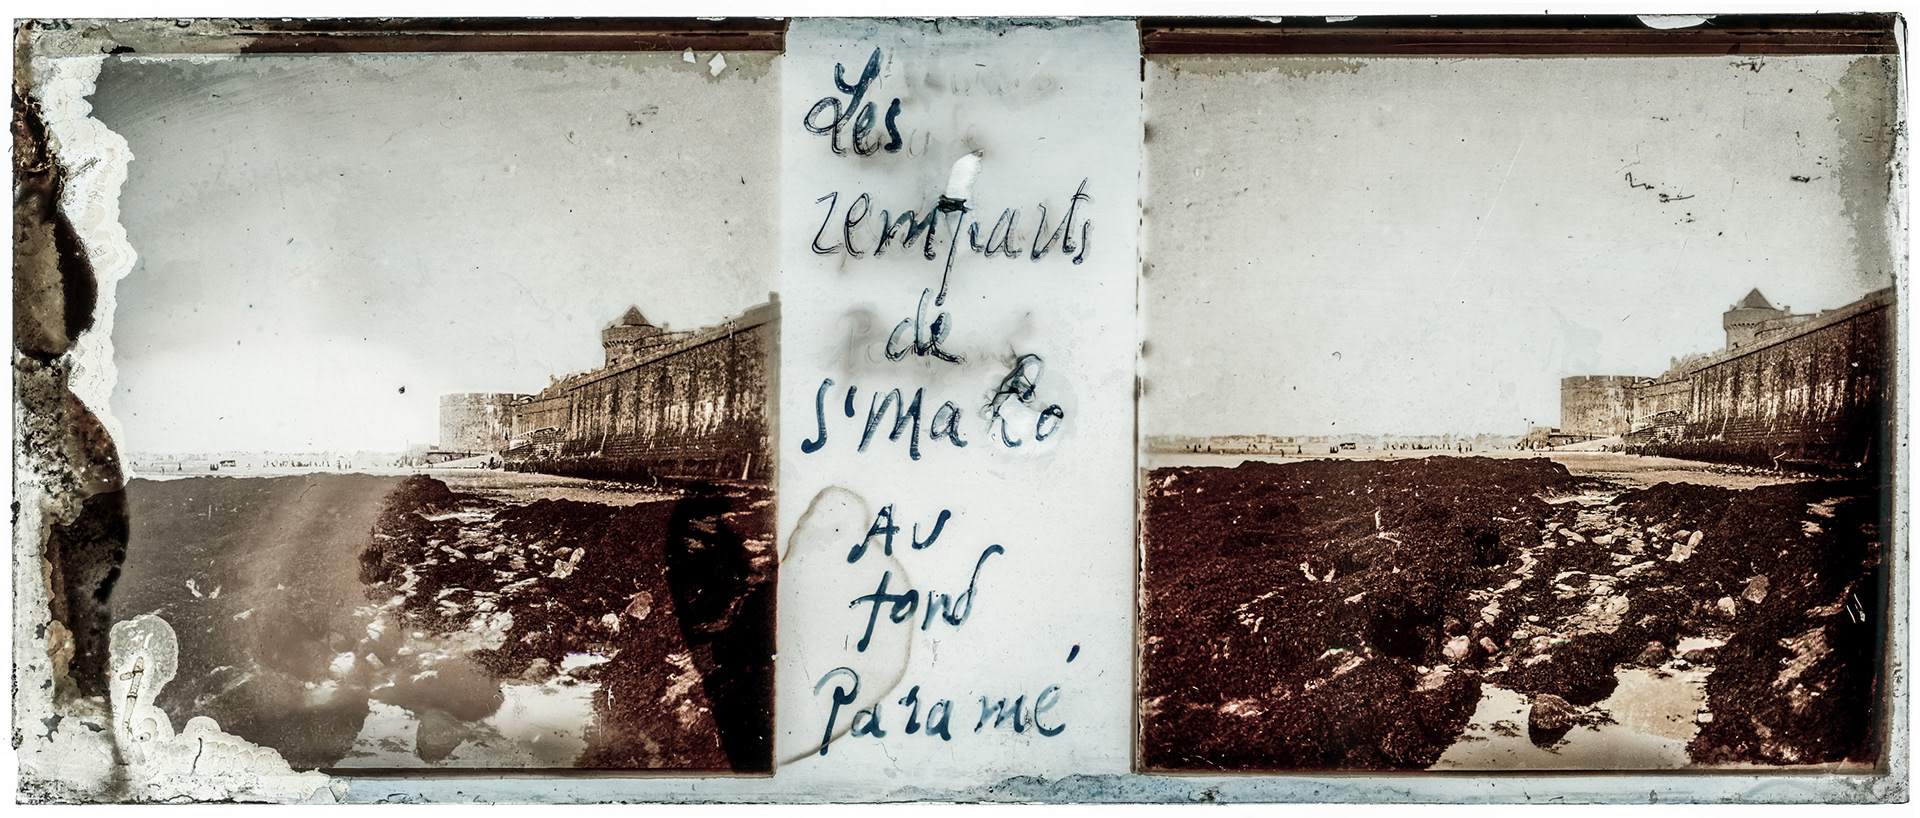 Les
remparts
de
S'Malo
Au
fond
Paramé